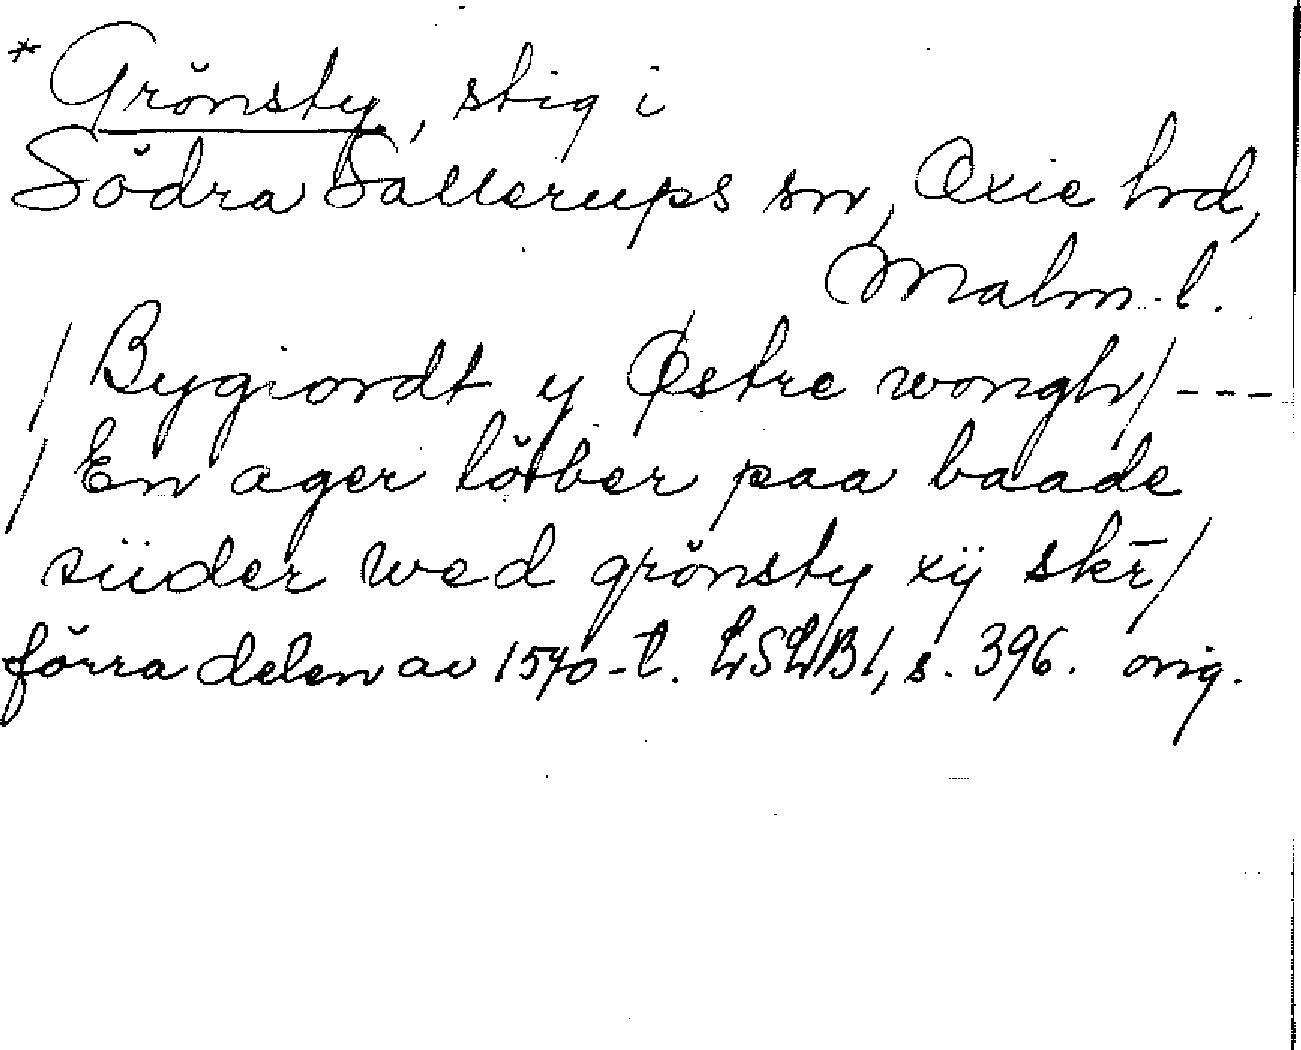 * Grönsty, stig i
Södra Sallerups sn, Oxie hd,
Malm. l.
/ Bygiordt y Østre wongh/ ---
/ En ager löber paa baade
siider wed grönsty xij skr̄/
förra delen av 1570-t. LSLB1, s. 396. orig.